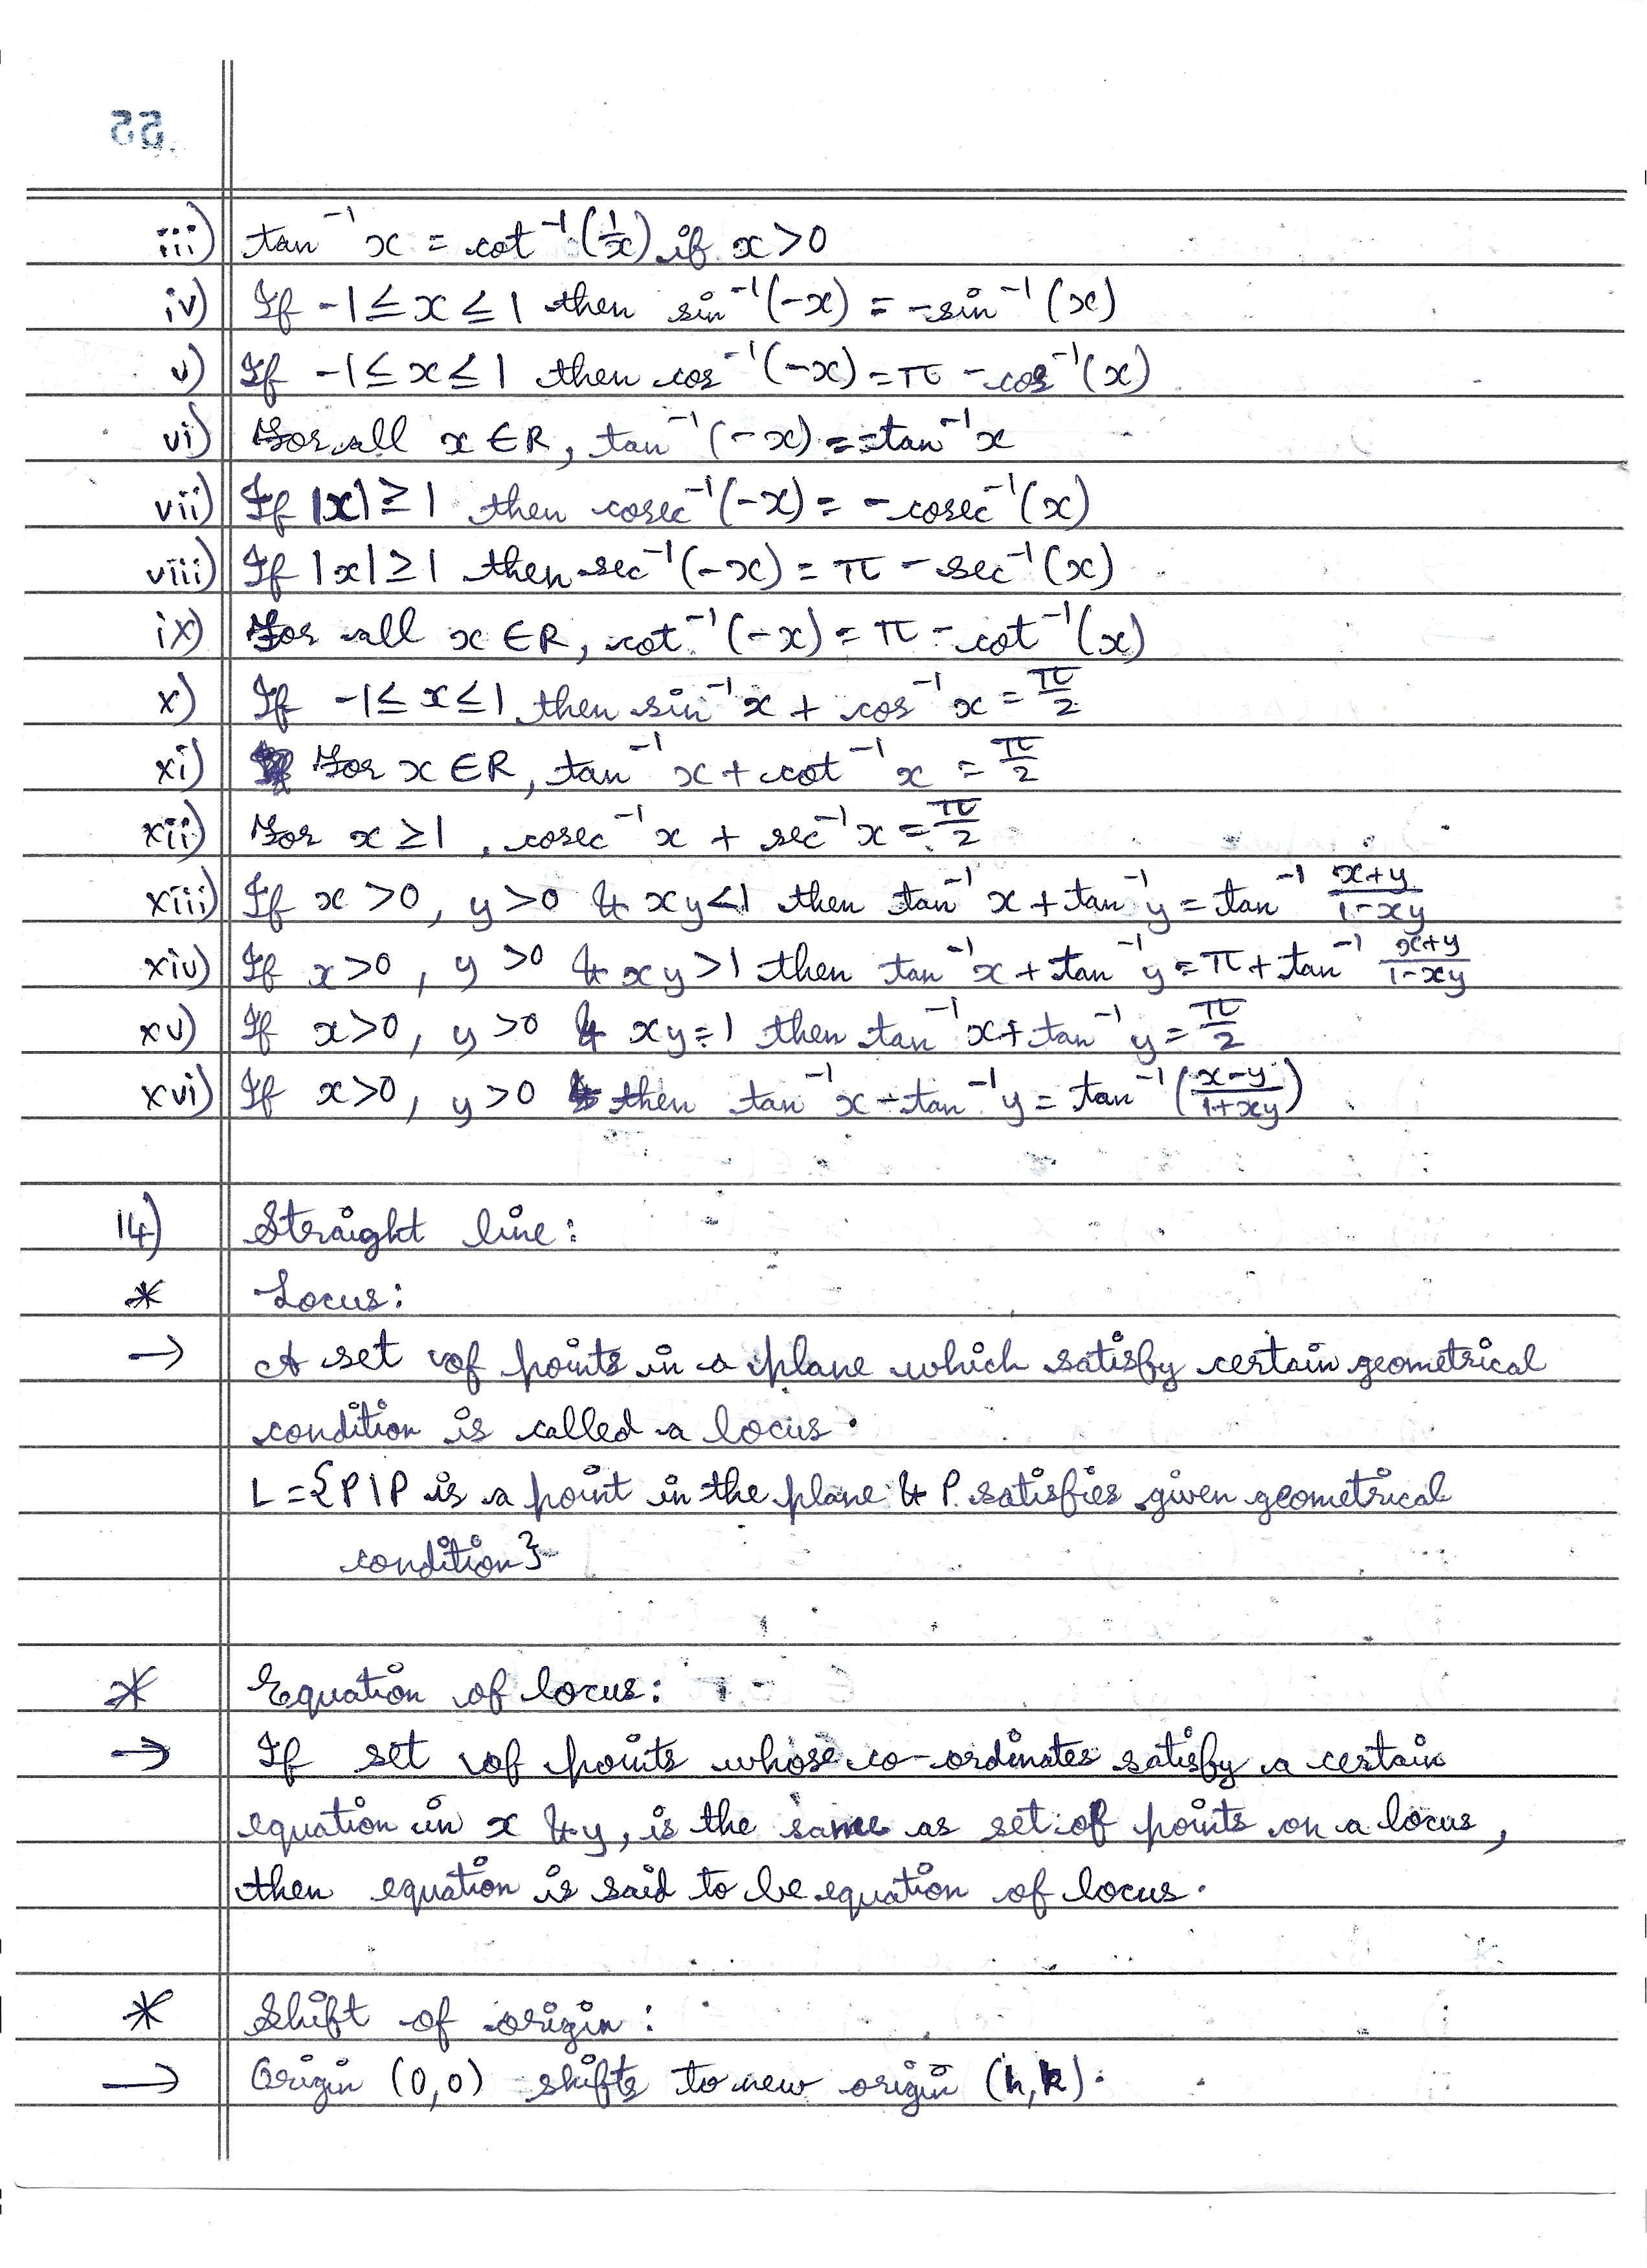 55
iii) tan⁻¹ x = cot⁻¹ (1/x) if x > 0
iv) If -1 ≤ x ≤ 1 then sin⁻¹(-x) = -sin⁻¹ (x)
v) If -1 ≤ x ≤ 1 then cos⁻¹(-x) = π - cos⁻¹(x)
vi) For all x ∈ R, tan⁻¹(-x) = -tan⁻¹x
vii) If |x| ≥ 1 then cosec⁻¹(-x) = -cosec⁻¹(x)
viii) If |x| ≥ 1 then sec⁻¹(-x) = π - sec⁻¹(x)
ix) For all x ∈ R, cot⁻¹(-x) = π - cot⁻¹(x)
x) If -1 ≤ x ≤ 1, then sin⁻¹x + cos⁻¹x = π/2
xi) For x ∈ R, tan⁻¹ x + cot⁻¹ x = π/2
xii) For x ≥ 1, cosec⁻¹x + sec⁻¹x = π/2
xiii) If x > 0, y > 0 & xy < 1 then tan⁻¹ x + tan⁻¹ y = tan⁻¹ x+y/1-xy
xiv) If x > 0, y > 0 & xy > 1 then tan⁻¹x + tan⁻¹y = π + tan⁻¹ x+y/1-xy
xv) If x > 0, y > 0 & xy = 1 then tan⁻¹x + tan⁻¹y = π/2
xvi) If x > 0, y > 0 then tan⁻¹x - tan⁻¹y = tan⁻¹(x-y/1+xy)
14) Straight line:
* Locus:
→ A set of points in a plane which satisfy certain geometrical
condition is called a locus.
L = {P|P is a point in the plane & P satisfies given geometrical
condition}
* Equation of locus:
→ If set of points whose co-ordinates satisfy a certain
equation in x & y, is the same as set of points on a locus,
then equation is said to be equation of locus.
* Shift of origin:
→ Origin (0,0) shifts to new origin (h,k).